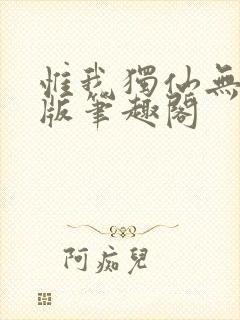 惟我獨仙無
版筆趣閣
阿痴兒